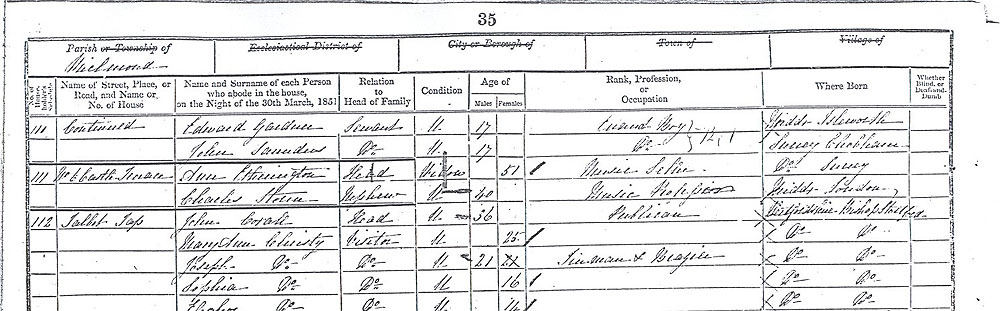 35
Parish or Township of
Ecclesiastical District of
City or Borough of
Town of
Village of
Richmond
No. of House-holder's Schedule
Name of Street, Place, or Road, and Name or No. of House
Name and Surname of each Person who abode in the house, on the Night of the 30th March, 1851
Relation to Head of Family
Condition
Age of
Males
Females
Rank, Profession, or Occupation
Where Born
Whether Blind, or Deaf-and-Dumb
111 Continued Edward Gardner Servant U 17 Errand Boy Middx Isleworth
John Saunders Do U 17 Do Surrey Chobham
111 Castle Terrace Ann Etherington Head Widow 51 Music Seller Do Surrey
Charles Nephew U 40 Music Professor Middx London
112 Talbot Tap John Head U 36 Publican Hertfordshire Bishop Stortford
Mary Ann Christy Visitor U 25 Do Do
Joseph Do Do U 21 21 Tinman & Brazier Do Do
Sophia Do Do U 16 Do Do
Do Do U 14 Do Do